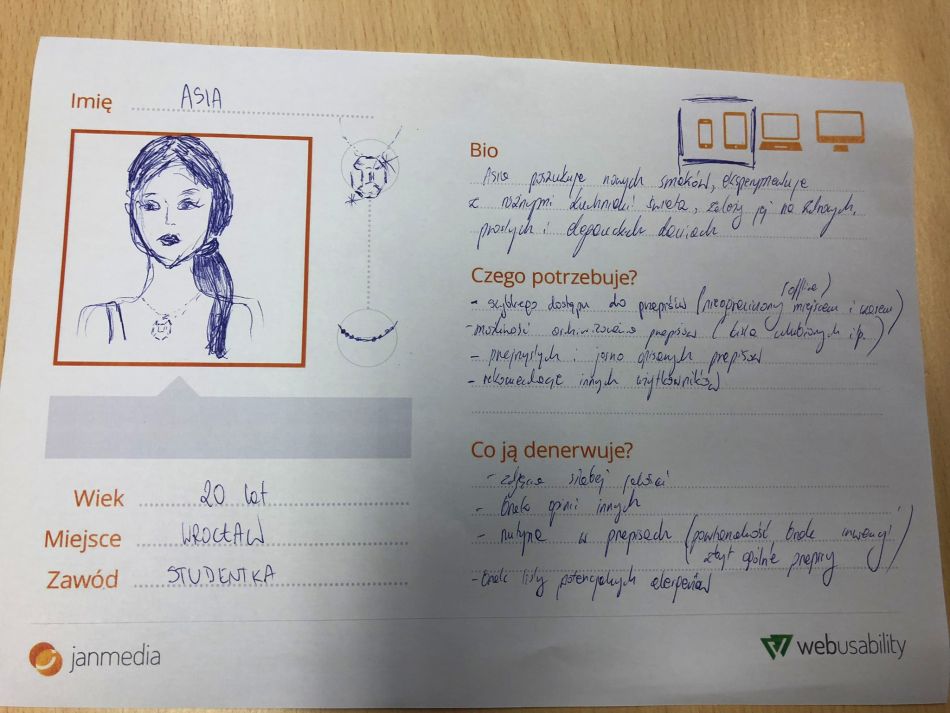 Imię ASIA
Wiek 20 lat
Miejsce WROCŁAW
Zawód STUDENTKA
janmedia
Bio
Asia poszukuje nowych smaków, eksperymentuje
z różnymi kuchniami świata, zależy jej na zdrowych,
prostych i eleganckich daniach
Czego potrzebuje?
(offline)
- szybkiego dostępu do przepisów (nieograniczony miejscem i czasem)
- możliwość archiwizowania przepisów (lista ulubionych itp.)
- przejrzystych i jasno opisanych przepisów
- rekomendacje innych użytkowników
Co ją denerwuje?
- zdjęcia słabej jakości
- brak opinii innych
- rutyna w przepisach (powtarzalność brak inwencji
zbyt ogólne przepisy)
- brak listy potencjalnych alergenów
webusability